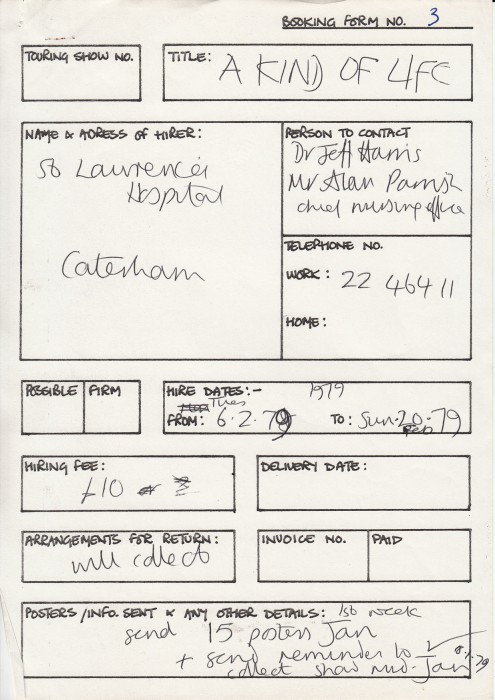 BOOKING FORM NO. 3
TOURING SHOW NO.
TITLE: A KIND OF LIFE
NAME & ADRESS OF HIRER:
St Lawrence's
Hospital
Caterham
PERSON TO CONTACT
Dr Jeff Harris
Mr Alan Parrish
chief nursing office
TELEPHONE NO.
WORK: 22 46411
HOME:
POSSIBLE
FIRM
HIRE DATES:- 1979
Tues
FROM: 6.2.79
TO: Sun. 20. 79
Feb
HIRING FEE:
£10
DELIVERY DATE:
ARRANGEMENTS FOR RETURN:
will collect
INVOICE NO.
PAID
POSTERS/INFO. SENT & ANY OTHER DETAILS: 1st week
send 15 posters Jan
+ send reminder to
collect show mid-Jan